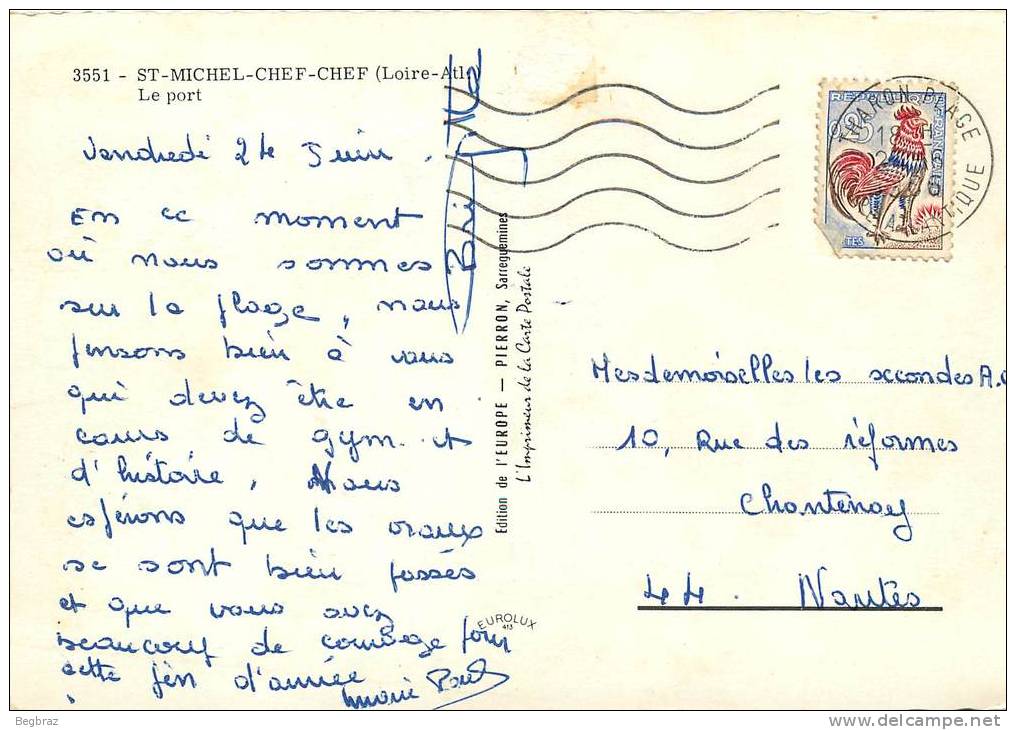 3551 - ST-MICHEL-CHEF-CHEF (Loire-Atl.)
Le port
Vendredi 24 Juin.
En ce moment
où nous sommes
sur la plage, nous
pensons bien à vous
qui devez être en
cours de gym. et
d'histoire, Nous
espérons que les oraux
se sont bien passés
et que vous avez
beaucoup de courage pour
cette fin d'année
.
Marie Paule
Brigitte
Edition de l'EUROPE — PIERRON, Sarreguemines
L'Imprimeur de la Carte Postale
EUROLUX
413
REPUBLIQUE FRANÇAISE
THARON PLAGE
ATLANTIQUE
Mesdemoiselles les secondes A.
10, Rue des réformes
Chantenay
44. Nantes
Begbraz
http://www.delcampe.net